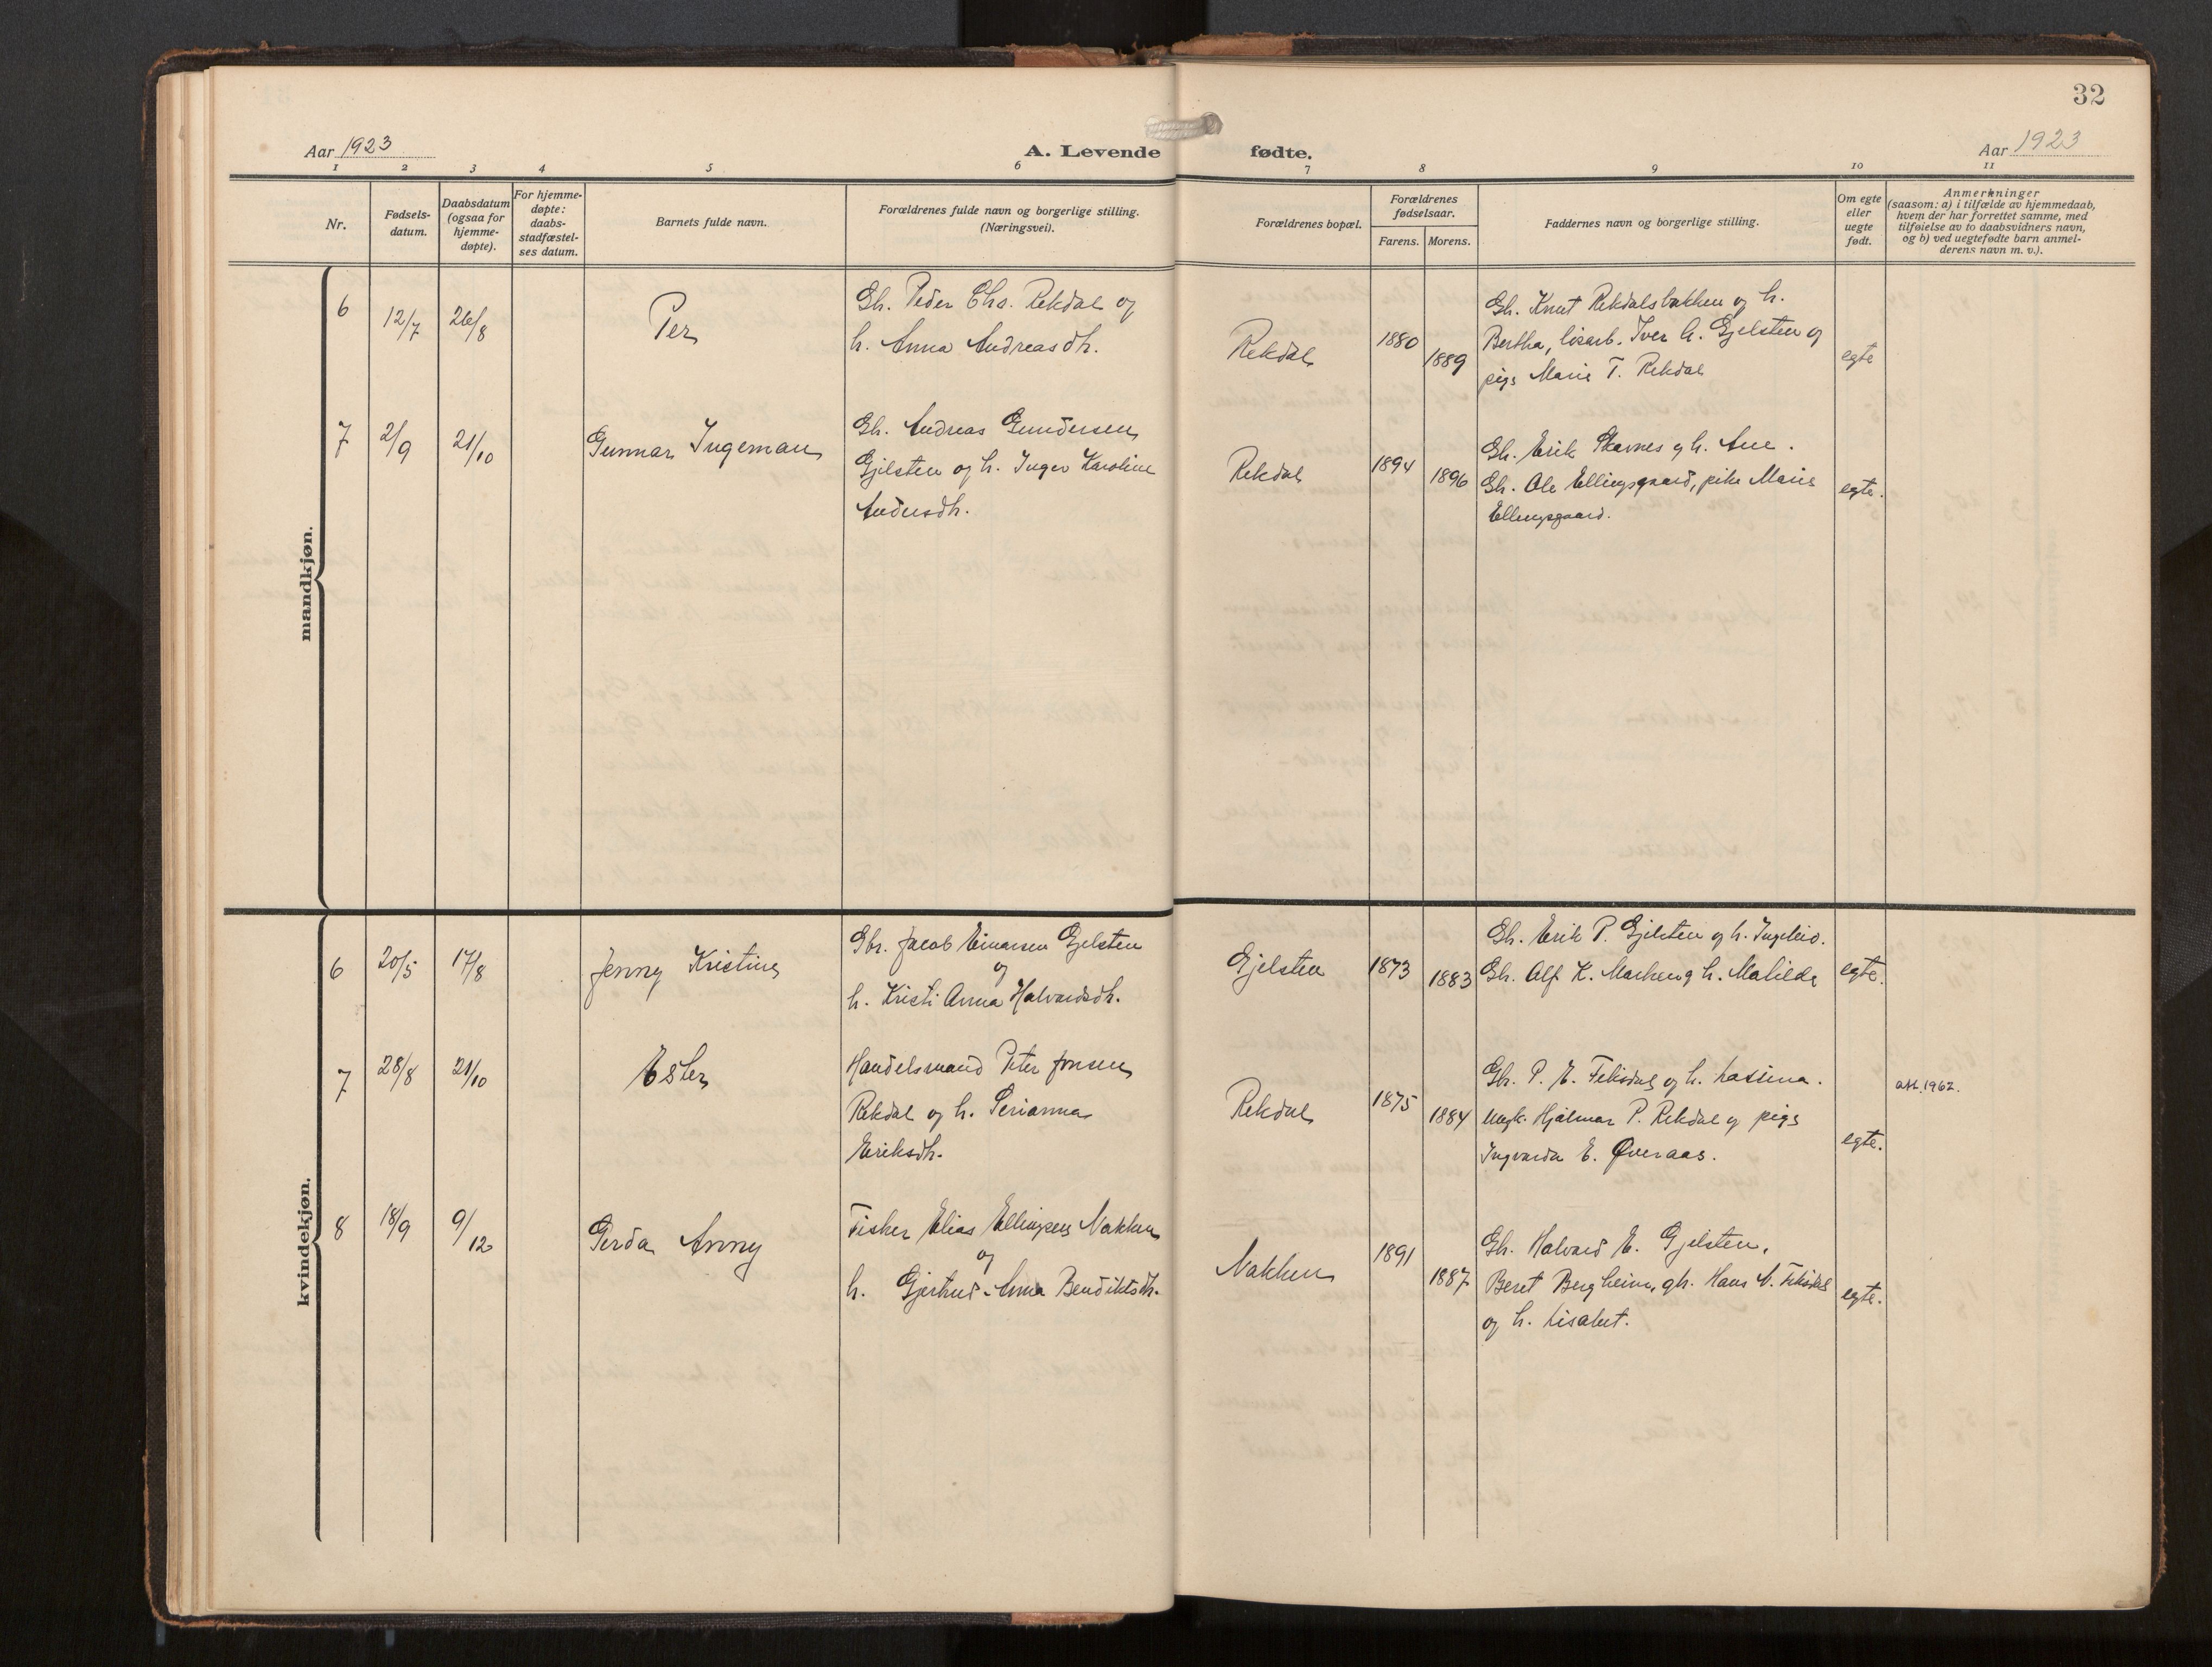 32
Aar 1923
A. Levende fødte.
Aar 1923
1 2 3 4 5 6 7 8 9 10 11
Nr.
Fødsels-
datum.
Daabsdatum
(ogsaa for
hjemme-
døpte).
For hjemme-
døpte:
daabs-
stadfæstel-
ses datum.
Barnets fulde navn.
Forældrenes fulde navn og borgerlige stilling.
(Næringsvei).
Forældrenes bopæl.
Forældrenes
fødselsaar.
Farens. Morens.
Faddernes navn og borgerlige stilling.
Om egte
eller
uegte
født.
Anmerkninger
(saasom: a) i tilfælde av hjemmedaab,
hvem der har forrettet samme, med
tilføielse av to daabsvidners navn,
og b) ved uegtefødte barn anmel-
derens navn m. v.).
mandkjøn.
6
12/7
26/8
Per
Gb. Peder Chs. Rekdal og
h. Anna Andreasdh.
Rekdal
1880
1889
Gb. Knut Rekdalsbakken og h.
Bertha, løsarb. Iver A. Gjelsten og
pige Marie T. Rekdal
egte
7
2/9
21/10
Gunnar Ingeman
Gb. Andreas Gundersen
Gjelsten og h. Inger Karoline
Andersdh.
Rekdal
1894
1896
Gb. Erik Skarnes og h. Ane.
Gb. Ole Ellingsgaard, pike Marie
Ellingsgaard.
egte.
kvindekjøn.
6
20/5
17/8
Jenny Kristine
Gbr. Jacob Einarsen Gjelsten
og
h. Kristi Anna Halvardsdh.
Gjelsten
1873
1883
Gb. Erik P. Gjelsten og h. Ingebio.
Gb. Alf K. Marken og h. Matilde
egte.
7
28/8
21/10
Ester
Handelsmand Peter Jonsen
Rekdal og h. Serianna
Eriksdh.
Rekdal
1875
1884
Gb. P. E. Fiksdal og h. Lassina.
Ungk. Hjalmar P. Rekdal og pige
Ingvarda E. Øveraas.
egte.
att. 1962.
8
18/9
9/12
Gerda Anny
Fisker Elias Ellingsen Nakken
og
h. Gjertrud-Anna Bendiktsdh.
Nakken
1891
1887
Gb. Halvard E. Gjelsten,
Beret Bergheim, gb. Hans A. Fiksdal
og h. Lisabet.
egte.